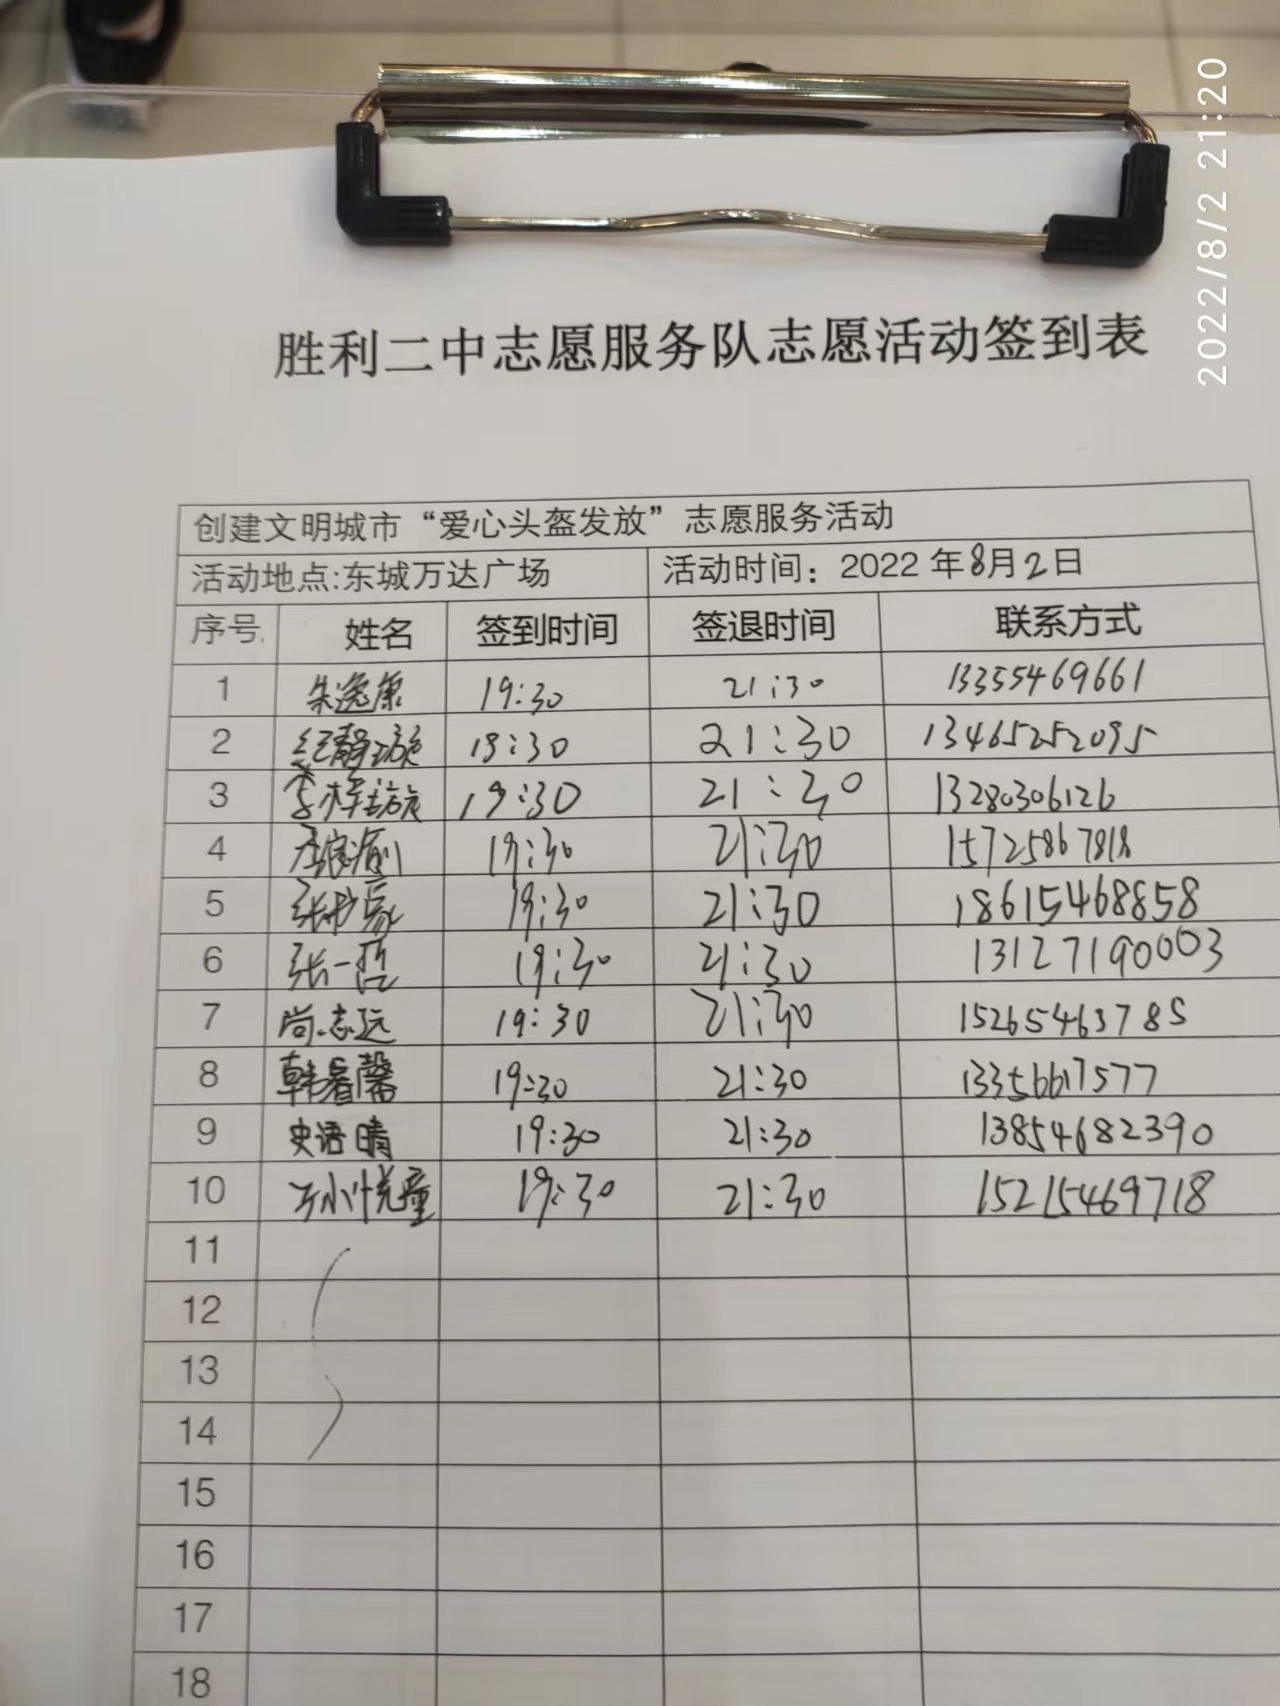 2022/8/2 21:20
胜利二中志愿服务队志愿活动签到表
创建文明城市“爱心头盔发放”志愿服务活动
活动地点:东城万达广场 活动时间：2022年8月2日
序号 姓名 签到时间 签退时间 联系方式
1 朱逸康 19:30 21:30 13355469661
2 纪静璇 19:30 21:30 13465252095
3 李梓旋 19:30 21:30 13280306126
4 19:30 21:30 15725867818
5 19:30 21:30 18615468858
6 张一哲 19:30 21:30 13127190003
7 尚志远 19:30 21:30 15265463785
8 韩睿馨 19:30 21:30 13356617577
9 史语晴 19:30 21:30 13854682390
10 19:30 21:30 15215469718
11
12
13
14
15
16
17
18